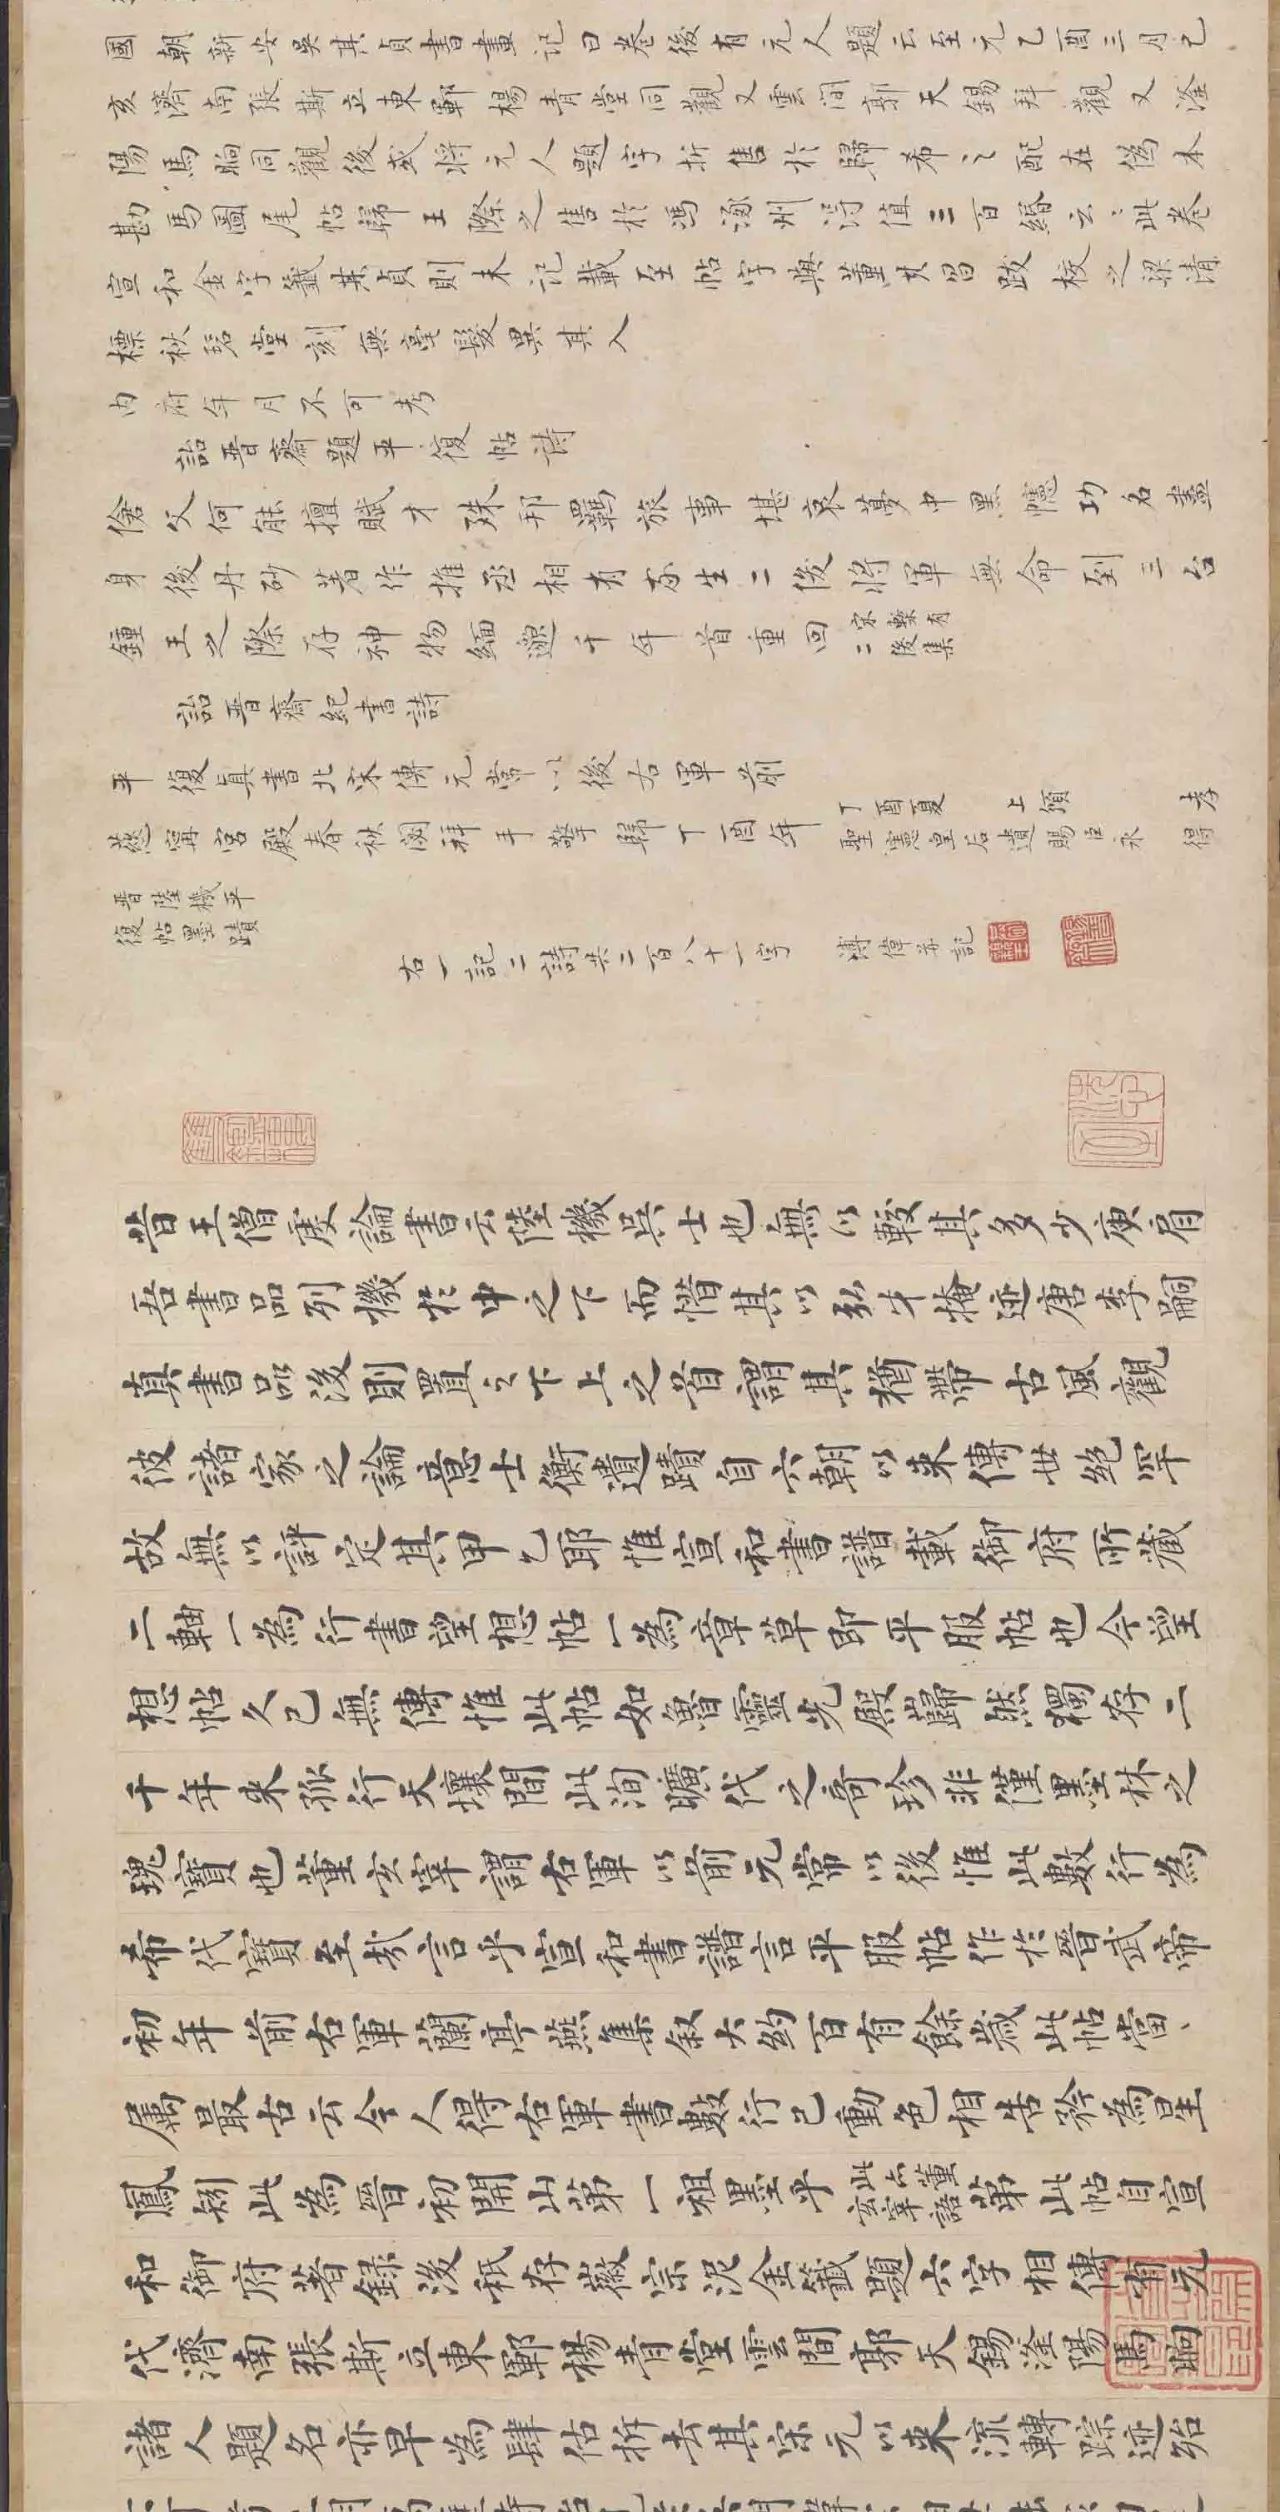 國朝新安吳其貞書畫記曰卷後有元人題云至元乙酉三月己
亥濟南張斯立東鄆楊青堂同觀又雲間郭天錫拜觀又滏
陽馬昫同觀後或將元人題字折售於歸希之配在偽本
勘馬圖尾帖歸王際之售於馮涿州得值三百緡云云此卷
宣和金字籤其貞則未記載至帖字與董其昌跋校之梁清
標秋碧堂刻無毫髮異其入
內府年月不可考
詒晉齋題平復帖詩
傖父何能擅賦才殊邦羈旅事堪哀夢中黑幰功名盡
身後丹砂著作推丞相有孫生二俊將軍無命到三台
鍾王之際存神物緬邈千年首重回 宋槧有
二俊集
詒晉齋紀書詩
平復真書北宋傳元常以後右軍前
慈寧宮殿春秋閟拜手擎歸丁酉年 丁酉夏 上頒 孝
聖憲皇后遺賜臣永 得
晉陸機平
復帖墨蹟
右一記二詩共二百八十一字 溥偉并記
昔王僧虔論書云陸機吳士也無以較其多少庾肩
吾書品列機於中之下而惜其以弘才掩迹唐李嗣
真書品後則置之下上之首謂其猶帶古風觀
彼諸家之論意士衡遺蹟自六朝以來傳世絕罕
故無以評定其甲乙耶惟宣和書譜載御府所藏
二軸一為行書望想帖一為章草即平服帖也今望
想帖久已無傳惟此帖如魯靈光殿巋然獨存二
千年來孤行天壤間此洵曠代之奇珍非僅墨林之
瑰寶也董玄宰謂右軍以前元常以後惟此數行為
希代寶至哉言乎宣和書譜言平服帖作於晉武帝
初年前右軍蘭亭燕集敘大約百有餘歲此帖當
屬最古云今人得右軍書數行已動色相告矜為星
鳳矧此為晉初開山第一祖墨乎 此六董
玄宰語 第此帖自宣
和御府著錄後秖存徽宗泥金籤題六字相傳有元
代濟南張斯立東鄆楊青堂雲間郭天錫滏陽馬昫
諸人題名亦早為肆估拆去其宋元以來流轉踪迹殆